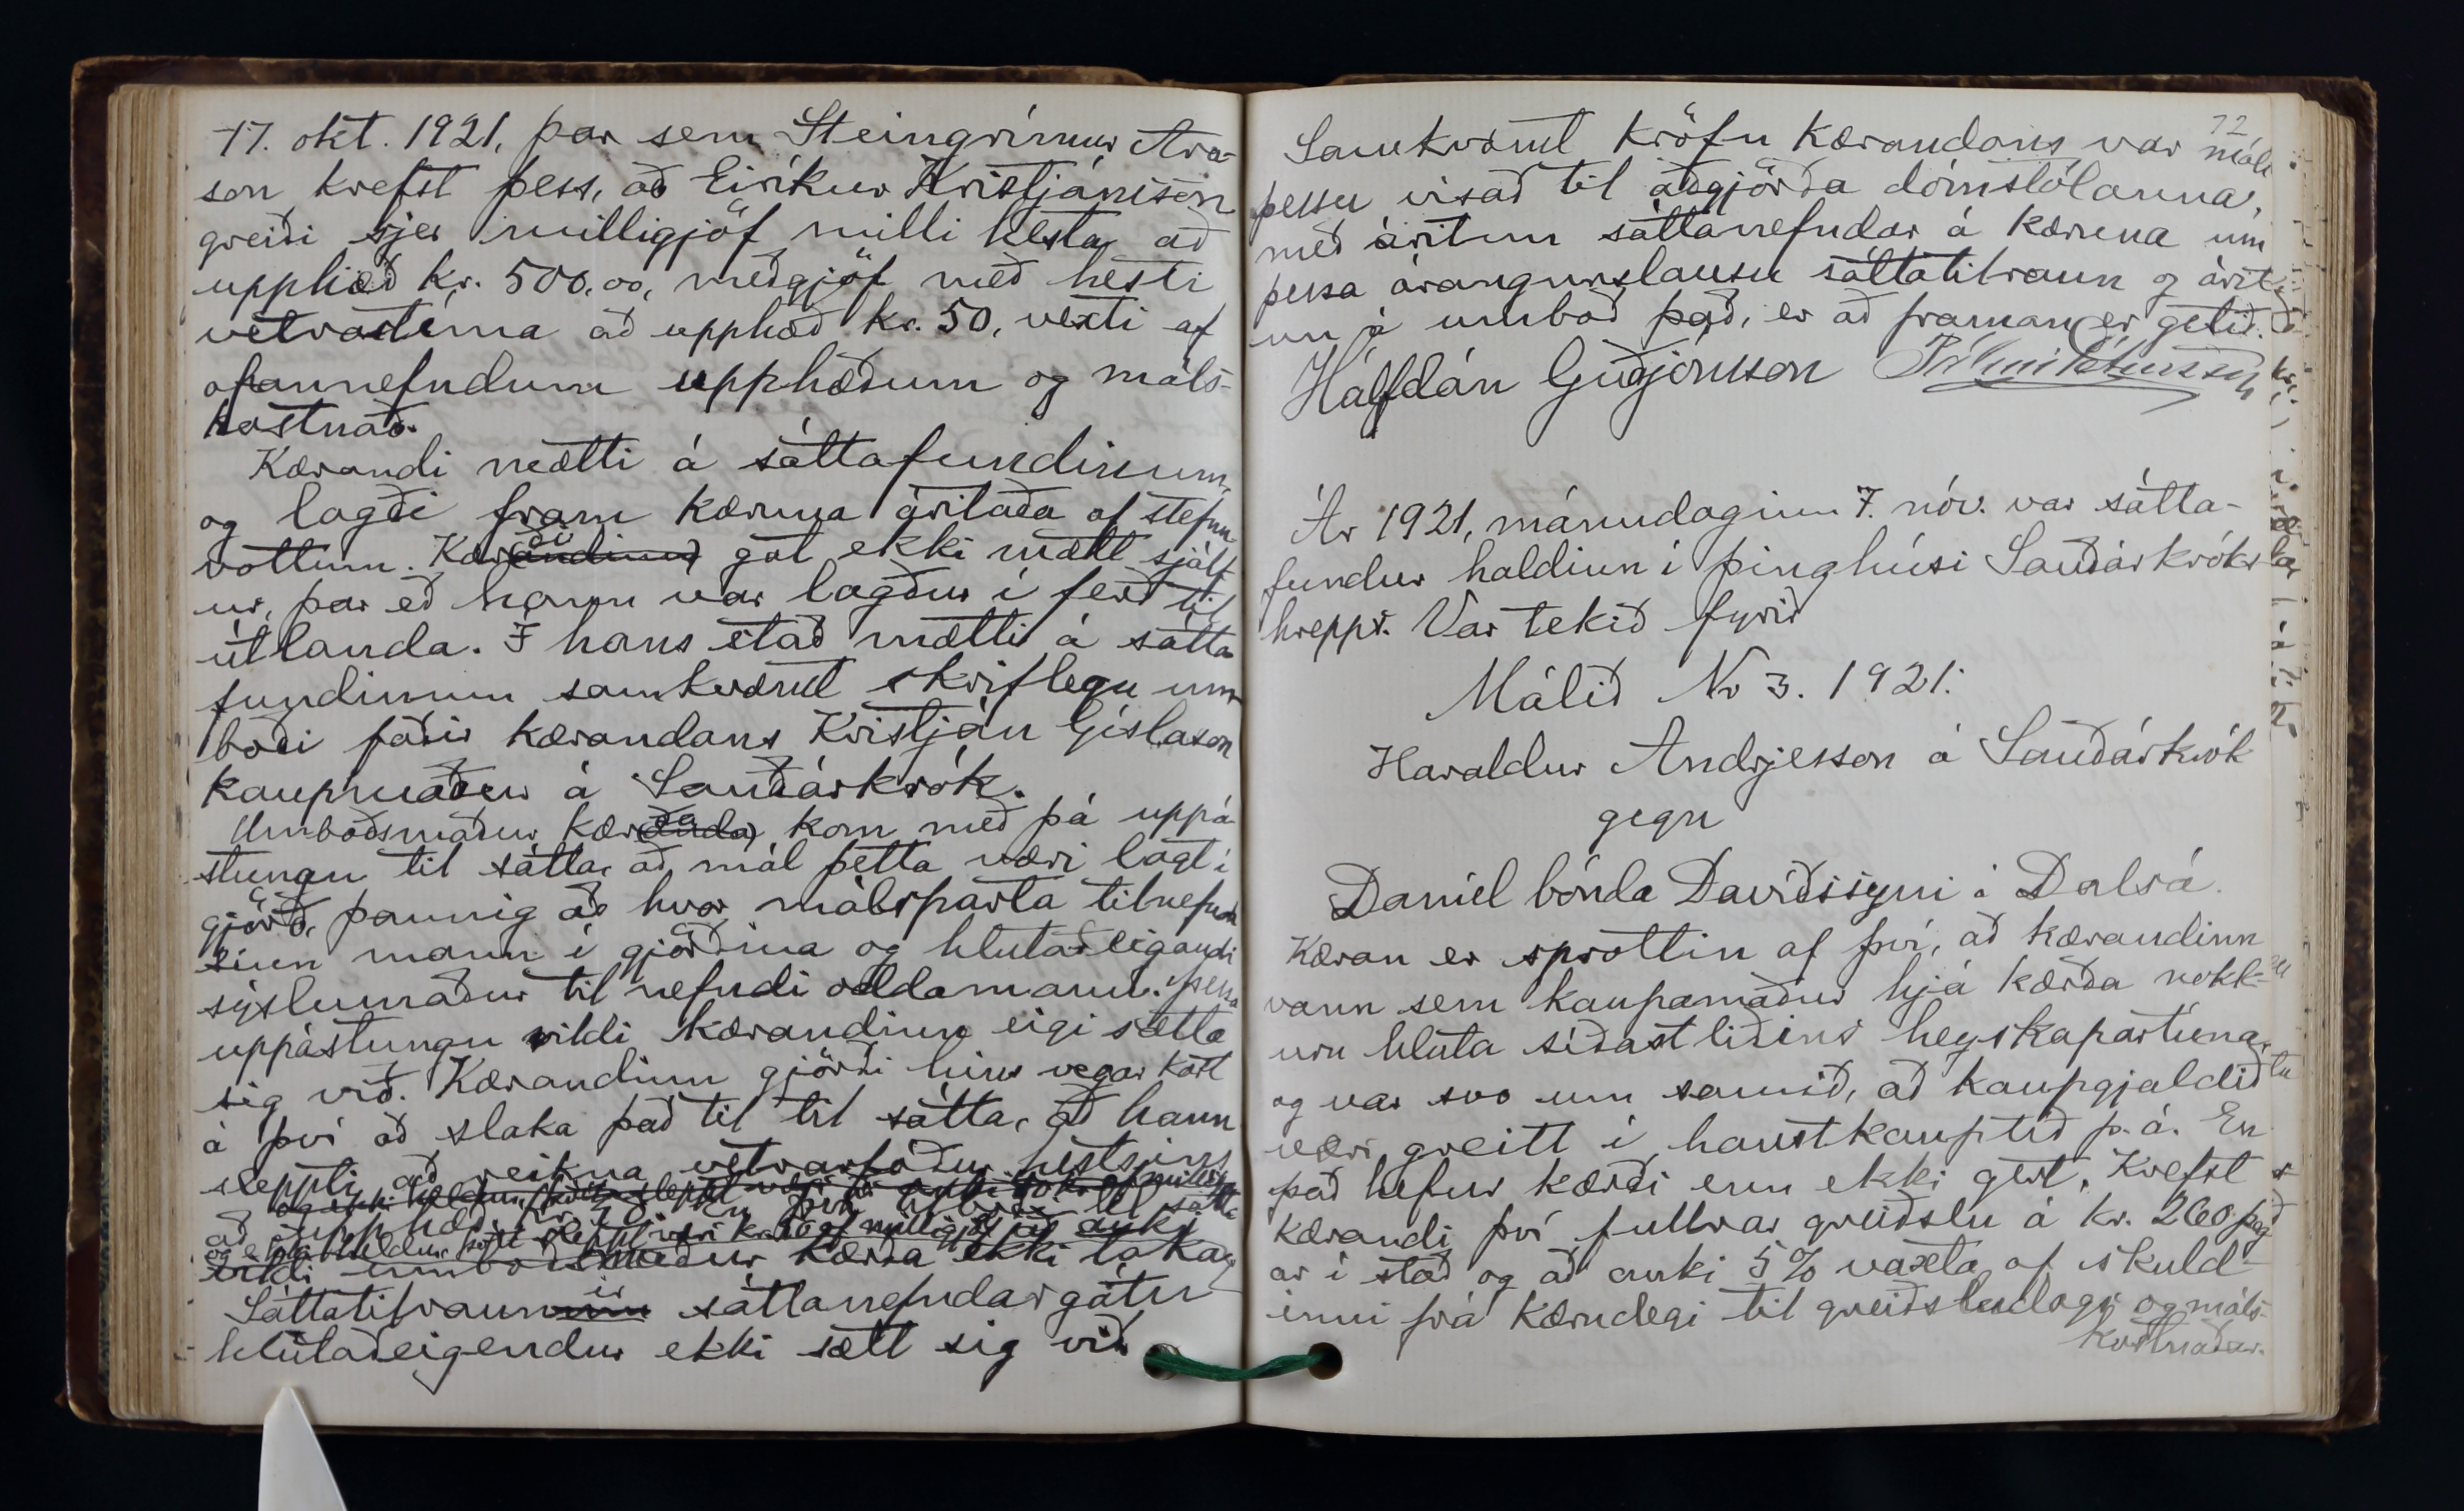 17. okt. 1921, þar sem Steingrímur Ara-
son krefst þess, að Eiríkur Kristjánsson
greiði sjer milligjöf milli hesta að
upphæð kr. 500,00, meðgjöf með hesti
vetrartíma að upphæð kr. 50, vexti af
ofannefndum upphæðum og máls-
kostnað.
Kærandi mætti á sáttafundinum,
og lagði fram kæruna áritaða af stefnu
vottum. Kærði gat ekki mætt sjálf
ur, þar eð hann var lagður í ferð til
útlanda. Í hans stað mætti á sátta
fundinum samkvæmt skriflegu um
boði faðir kærandans Kristján Gíslason
kaupmaður á Sauðárkrók.
Umboðsmaður kærða kom með þá uppá
stungu til sátta, að mál þetta væri lagt í
gjörð, þannig að hvor málsparta tilnefndi
sinn mann í gjörðina og hlutaðeigandi
sýslumaður til nefndi oddamann. Þessa
uppástungu vildi kærandinn eigi sætta
sig við. Kærandinn gjörði hins vegar kost
á því að slaka það til til sátta, að hann
sleppti að reikna vetrarfóður hestsins
að upphæð kr. 50. En því tilboði til sátta
og eigi heldur þótt sleppt væri kr. 50 af milligjöf að auki
vildi umboðsmaður kærða ekki taka
Sáttatilraunir sáttanefndar gátu
hlutaðeigendur ekki sætt sig við
72
Samkvæmt kröfu kærandans var máli
þessu vísað til aðgjörða dómstólanna,
með áritun sáttanefndar á kæruna um
þessa árangurslausu sáttatilraun og árit
un á umboð það, er að framan er getið.
Hálfdán Guðjónsson Pálmi Pétursson
Ár 1921, mánudaginn 7. nóv. var sátta-
fundur haldinn í þinghúsi Sauðárkróks
hrepps. Var tekið fyrir
Málið No 3. 1921:
Haraldur Andrjesson á Sauðárkrók
gegn
Daníel bónda Davíðssyni á Dalsá.
Kæran er sprottin af því, að kærandinn
vann sem kaupamaður hjá kærða nokk-
urn hluta síðastliðins heyskapartíma,
og var svo um samið, að kaupgjaldið
væri greitt í haustkauptíð þ. á. En
það hefur kærði enn ekki gert. Krefst
kærandi því fullrar greiðslu á kr. 260 þeg
ar í stað og að auki 5% vaxta af skuld-
inni frá kærudegi til greiðsludags og máls-
kostnaðar.